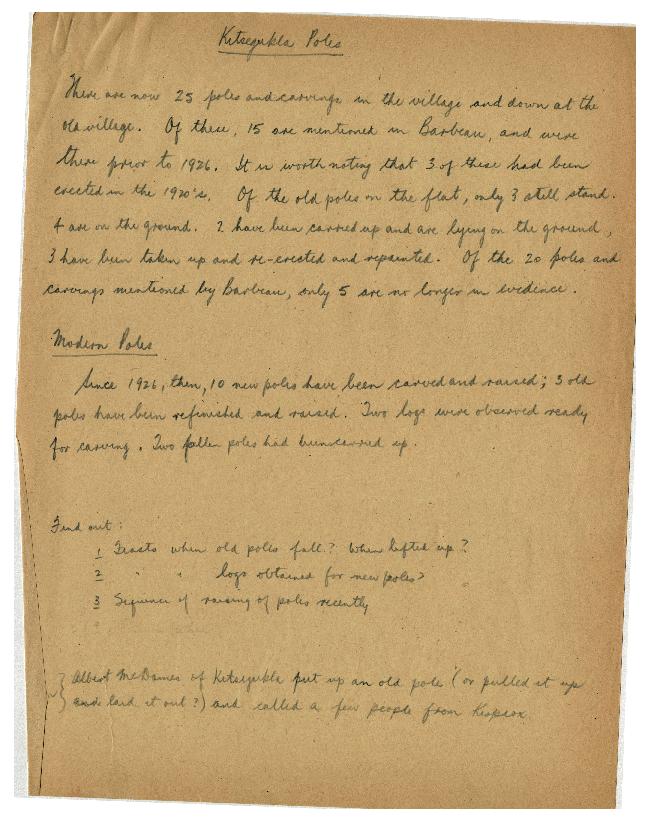 Kitsegukla Poles
There are now 25 poles and carvings in the village and down at the
old village. Of these, 15 are mentioned in Barbeau, and were
there prior to 1926. It is worth noting that 3 of these had been
erected in the 1920's. Of the old poles on the flat, only 3 still stand.
4 are on the ground. 2 have been carried up and are lying on the ground,
3 have been taken up and re-erected and repainted. Of the 20 poles and
carvings mentioned by Barbeau, only 5 are no longer in evidence.
Modern Poles
Since 1926, then, 10 new poles have been carved and raised; 3 old
poles have been refinished and raised. Two logs were observed ready
for carving. Two fallen poles had been carried up.
Find out:
1 Feasts when old poles fall? When lifted up?
2 " " logs obtained for new poles?
3 Sequence of raising of poles recently
Albert McDames of Kitsegukla put up an old pole (or pulled it up
and laid it out?) and called a few people from